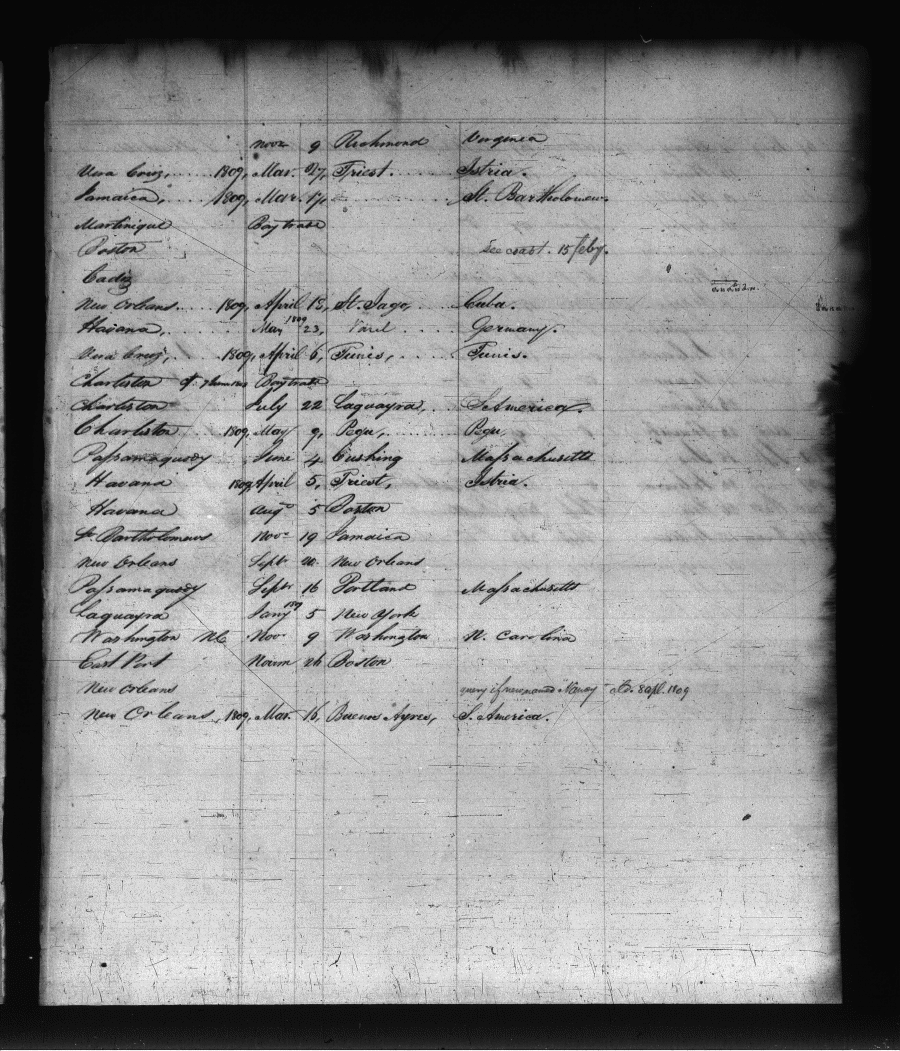 Novr 9 Richmond Virginia
Vera Cruz, ..... 1809, Mar. 27, Triest. ..... Istria.
Jamaica, ..... 1809, Mar. 17, St. Bartholomew.
Martinique Bay trade
Boston See coast. 15 feby.
Cadiz
New Orleans .... 1809, April 15, St. Iago, ... Cuba.
Havana, .... May 1809 23, .... Germany.
Vera Cruz, .... 1809, April 6, Tunis, .... Tunis.
Charleston of Bay trade
Charleston July 22 Laguayra, .. S. America.
Charleston ... 1809, May 9, Pegu, .... Pegu
Passamaquody June 4 Cushing Massachusetts
Havana 1809, April 5, Triest, Istria.
Havana Augt 5 Boston
St Bartholomews Novr 19 Jamaica
New Orleans Sept 20 New Orleans
Passamaquody Septr 16 Portland Massachusetts
Laguayra Jany 5 New York
Washington NC Novr 9 Washington N. Carolina
East Port 26 Boston
New Orleans query if new named "Nancy" cld. 8 apl. 1809
New Orleans, 1809, Mar. 16, Buenos Ayres, S. America.